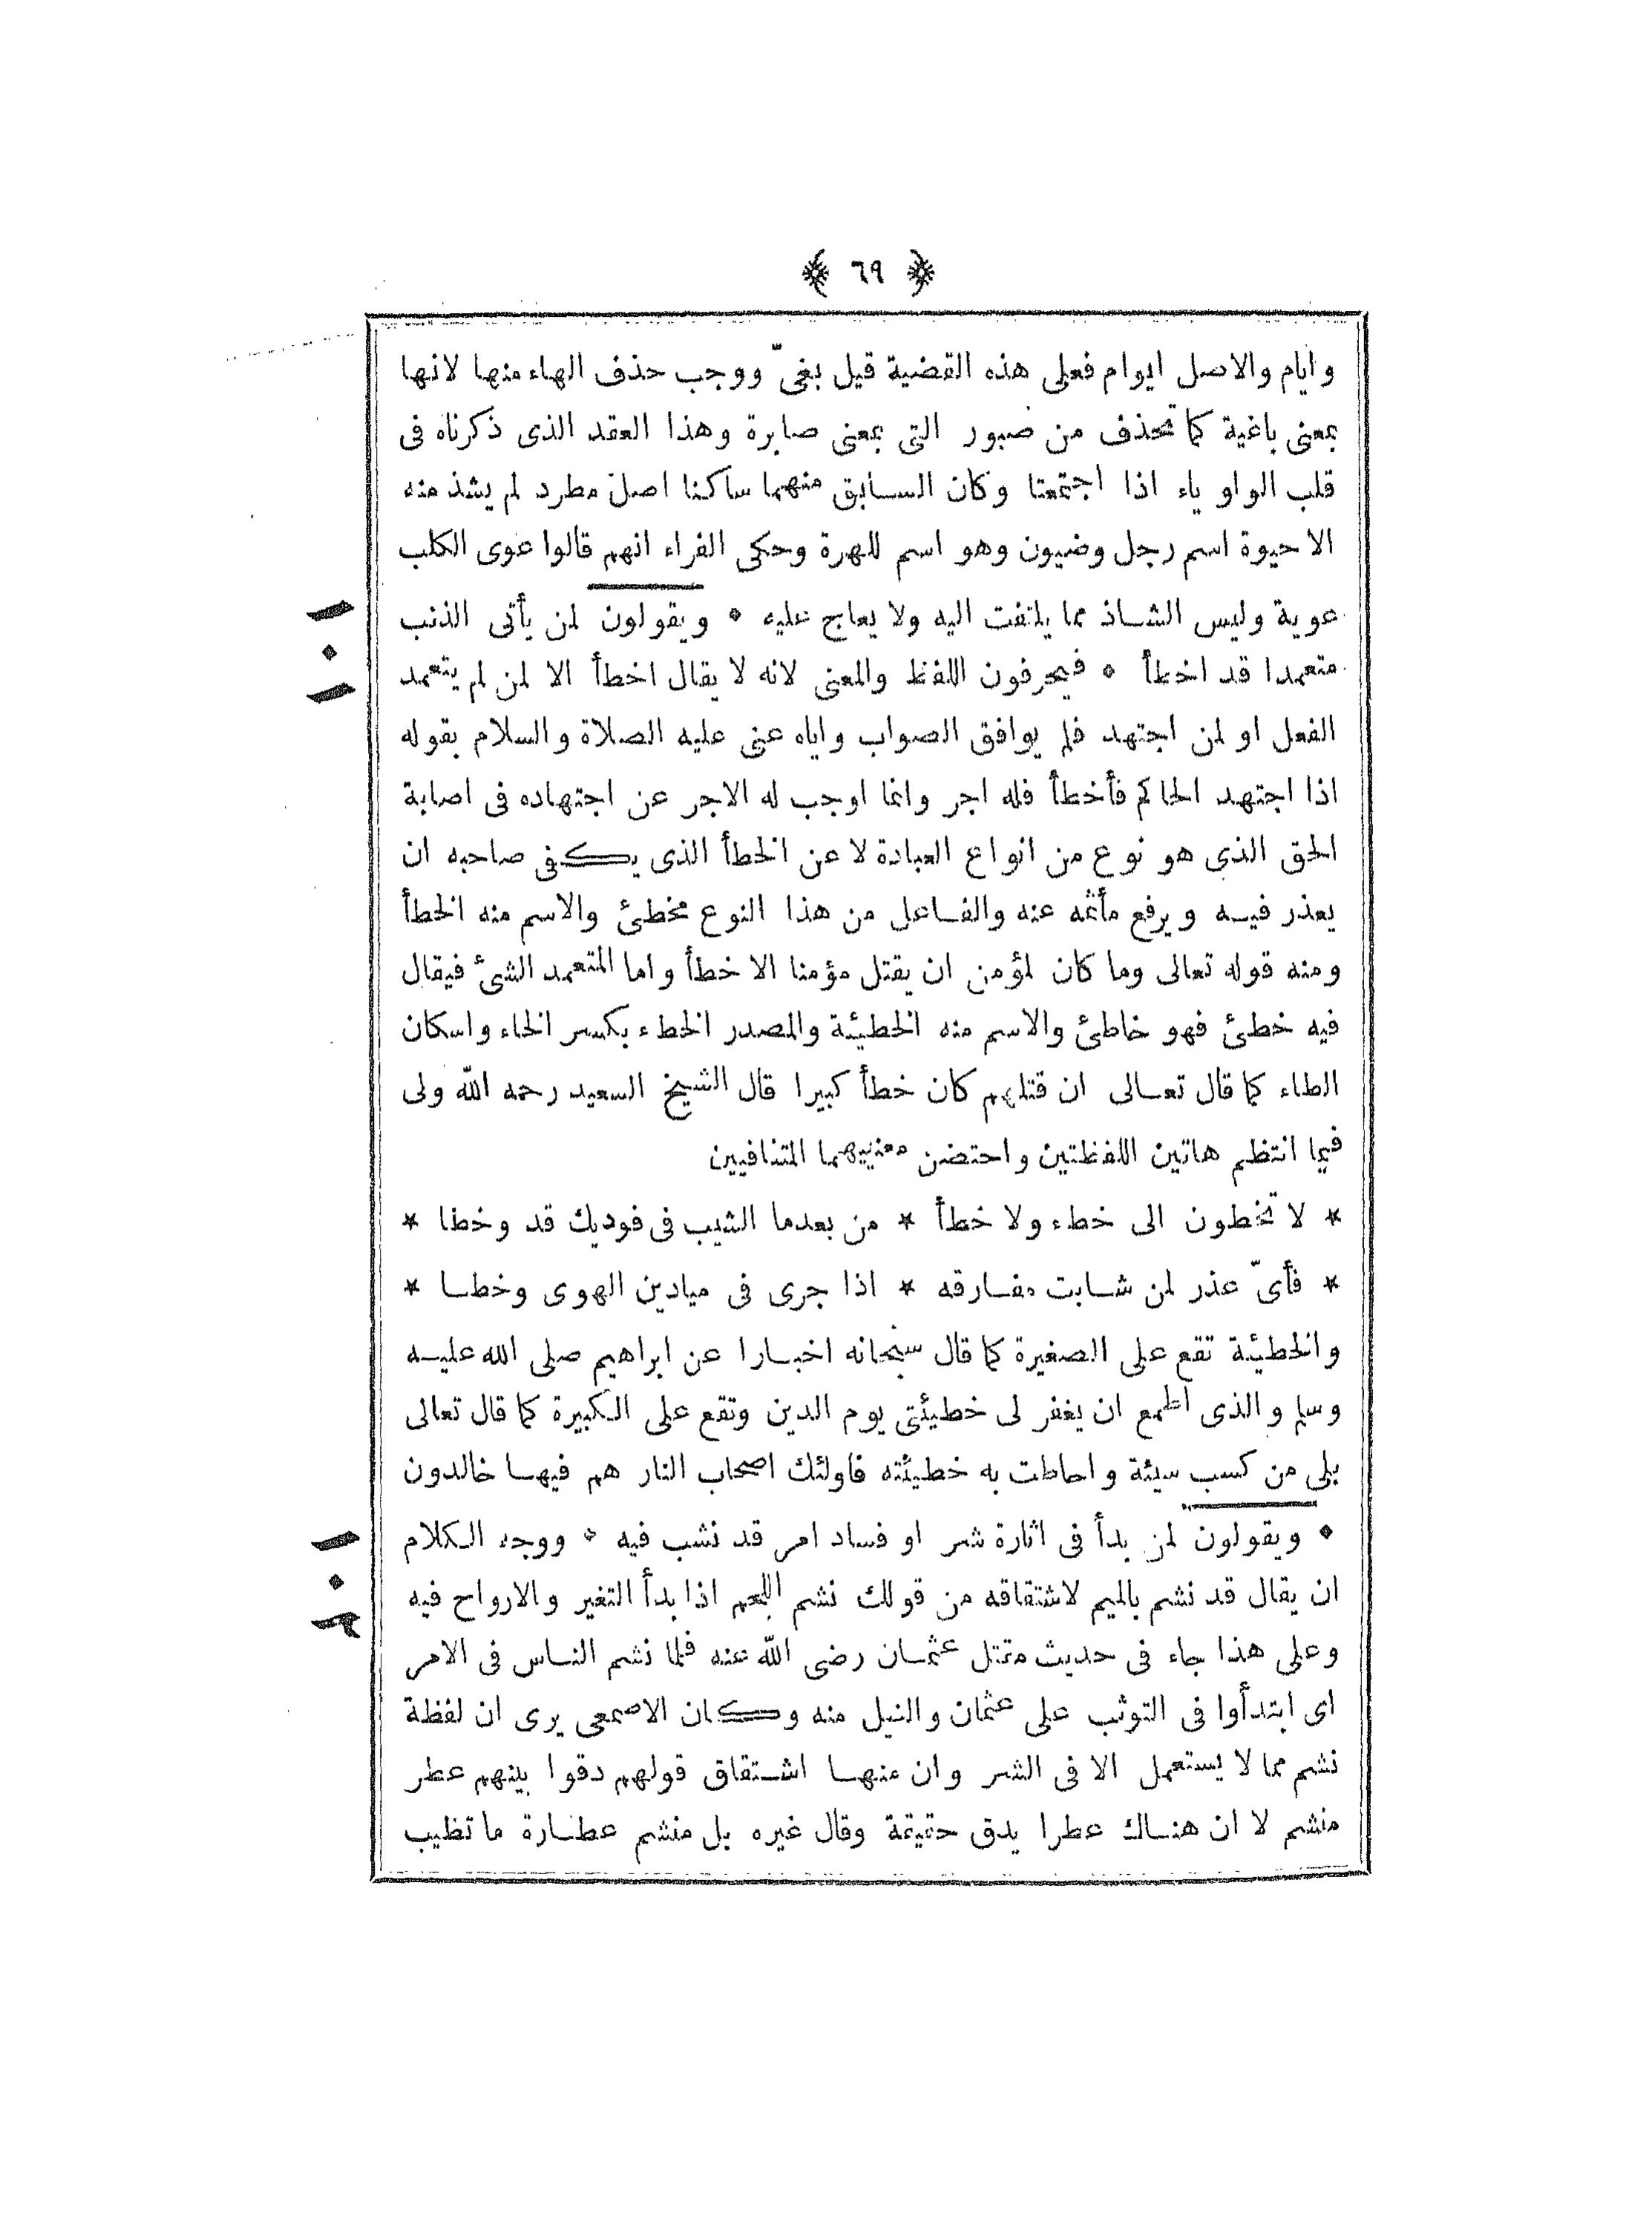 ﴿ ٦٩ ﴾
وايام والاصل ايوام فعلى هذه القضية قيل بغىّ ووجب حذف الهاء منها لانها
بمعنى باغية كما تحذف من صبور التى بمعنى صابرة وهذا العقد الذى ذكرناه فى
قلب الواو ياء اذا اجتمعتا وكان السابق منهما ساكنا اصل مطرد لم يشذ منه
الا حيوة اسم رجل وضيون وهو اسم للهرة وحكى الفراء انهم قالوا عوى الكلب
عوية وليس الشاذ مما يلتفت اليه ولا يعاج عليه * ويقولون لمن يأتى الذنب
١٠١
متعمدا قد اخطأ * فيحرفون اللفظ والمعنى لانه لا يقال اخطأ الا لمن لم يتعمد
الفعل او لمن اجتهد فلم يوافق الصواب واياه عنى عليه الصلاة والسلام بقوله
اذا اجتهد الحاكم فأخطأ فله اجر وانما اوجب له الاجر عن اجتهاده فى اصابة
الحق الذى هو نوع من انواع العبادة لا عن الخطأ الذى يكفى صاحبه ان
يعذر فيه ويرفع مأثمه عنه والفاعل من هذا النوع مخطئ والاسم منه الخطأ
ومنه قوله تعالى وما كان لمؤمن ان يقتل مؤمنا الا خطأ واما المتعمد الشئ فيقال
فيه خطئ فهو خاطئ والاسم منه الخطيئة والمصدر الخطء بكسر الخاء واسكان
الطاء كما قال تعالى ان قتلهم كان خطأ كبيرا قال الشيخ السعيد رحمه الله ولى
فيما انتظم هاتين اللفظتين واحتضن معنييهما المتنافيين
* لا تخطون الى خطء ولا خطأ * من بعدما الشيب فى فوديك قد وخطا *
* فأىّ عذر لمن شابت مفارقه * اذا جرى فى ميادين الهوى وخطا *
والخطيئة تقع على الصغيرة كما قال سبحانه اخبارا عن ابراهيم صلى الله عليه
وسلم والذى اطمع ان يغفر لى خطيئتى يوم الدين وتقع على الكبيرة كما قال تعالى
بلى من كسب سيئة واحاطت به خطيئته فاولئك اصحاب النار هم فيها خالدون
* ويقولون لمن بدأ فى اثارة شر او فساد امر قد نشب فيه * ووجه الكلام
١٠٢
ان يقال قد نشم بالميم لاشتقاقه من قولك نشم اللحم اذا بدأ التغير والارواح فيه
وعلى هذا جاء فى حديث مقتل عثمان رضى الله عنه فلما نشم الناس فى الامر
اى ابتدأوا فى التوثب على عثمان والنيل منه وكان الاصمعى يرى ان لفظة
نشم مما لا يستعمل الا فى الشر وان منها اشتقاق قولهم دقوا بينهم عطر
منشم لا ان هناك عطرا يدق حقيقة وقال غيره بل منشم عطارة ما تطيب